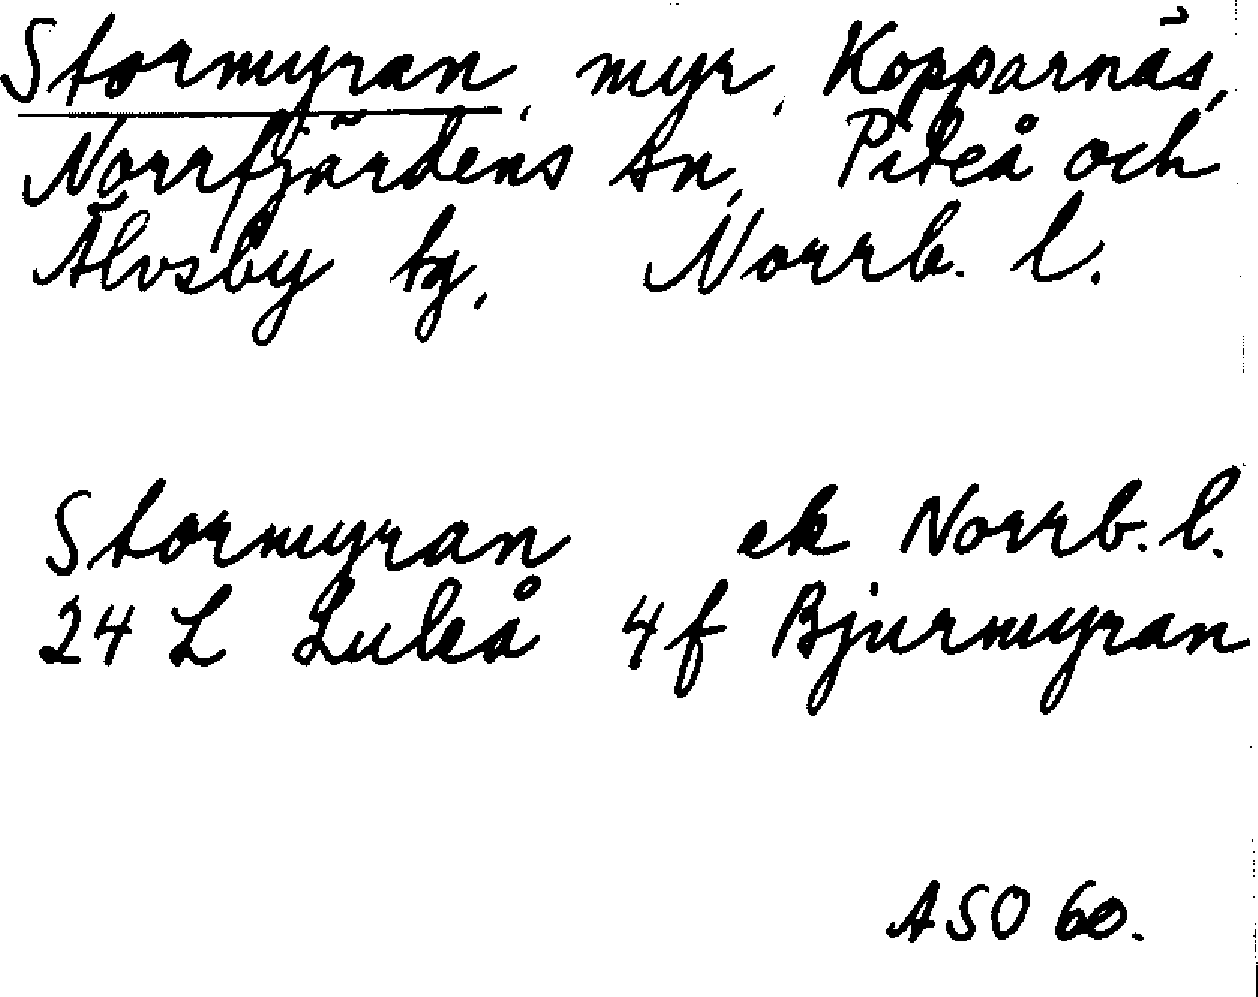 Stormyran, myr, Kopparnäs,
Norrfjärdens sn, Piteå och
Älvsby tg. Norrb. l.
Stormyran ek Norrb. l.
24 L Luleå 4f Bjurmyran
ASO 60.